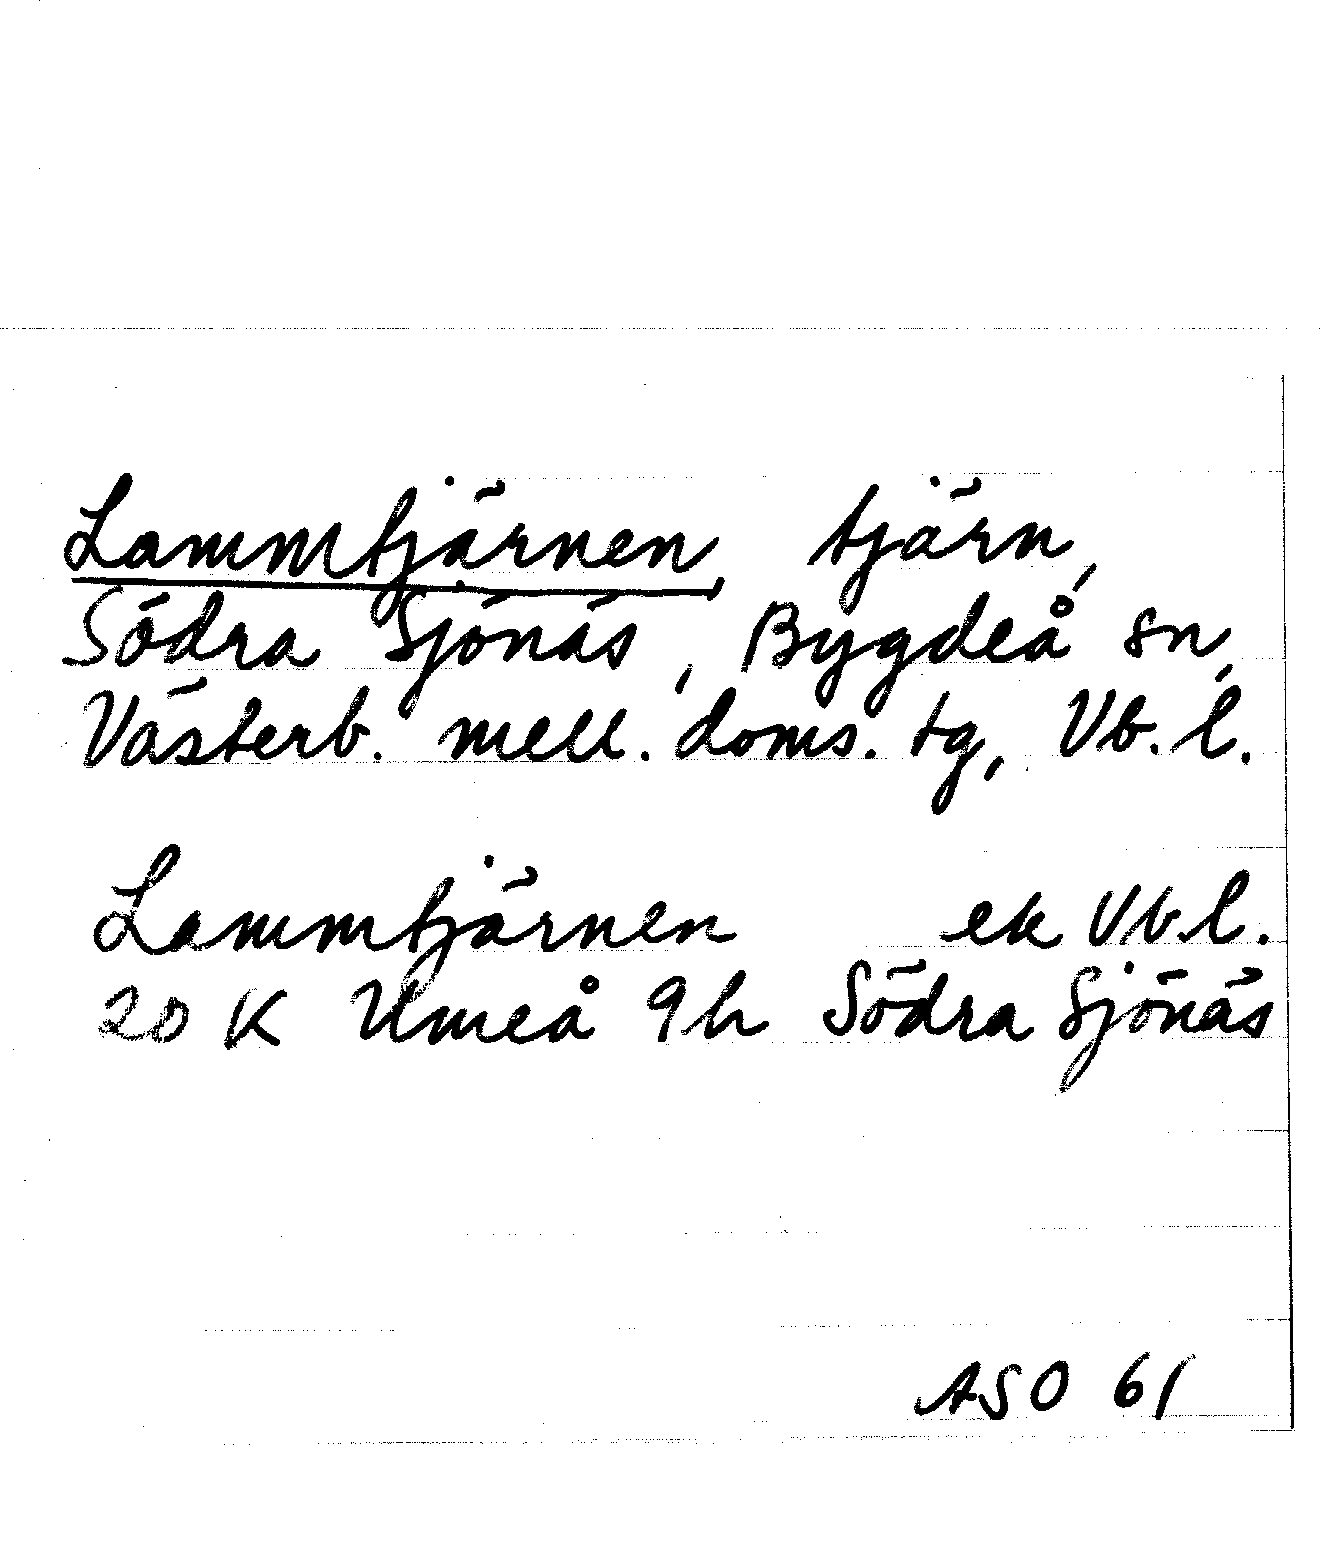 Lammtjärnen, tjärn,
Södra Sjönäs, Bygdeå sn,
Västerb. mell. doms. tg, Vb. l.
Lammtjärnen ek Vb.l.
20 K Umeå 9h Södra Sjönäs
ASO 61